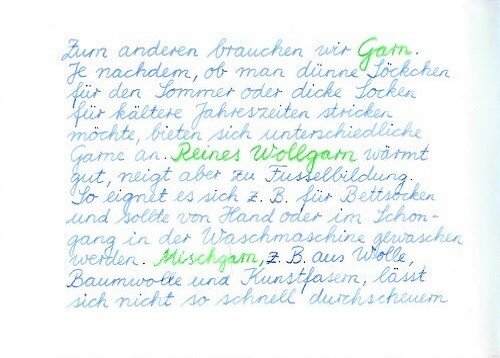 Zum anderen brauchen wir Garn.
Je nachdem, ob man dünne Söckchen
für den Sommer oder dicke Socken
für kältere Jahreszeiten stricken
möchte, bieten sich unterschiedliche
Garne an. Reines Wollgarn wärmt
gut, neigt aber zu Fusselbildung.
So eignet es sich z. B. für Bettsocken
und sollte von Hand oder im Schon-
gang in der Waschmaschine gewaschen
werden. Mischgarn, z. B. aus Wolle,
Baumwolle und Kunstfasern, lässt
sich nicht so schnell durchscheuern